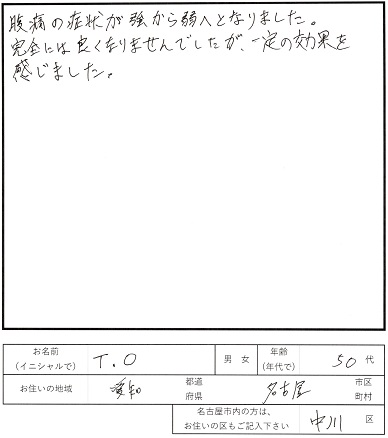 腹痛の症状が強から弱へとなりました。
完全には良くなりませんでしたが、一定の効果を
感じました。
お名前
(イニシャルで) T.O 男 女 年齢
(年代で) 50 代
お住いの地域 愛知 都道
府県 名古屋 市区
町村
名古屋市内の方は、
お住いの区もご記入下さい 中川 区